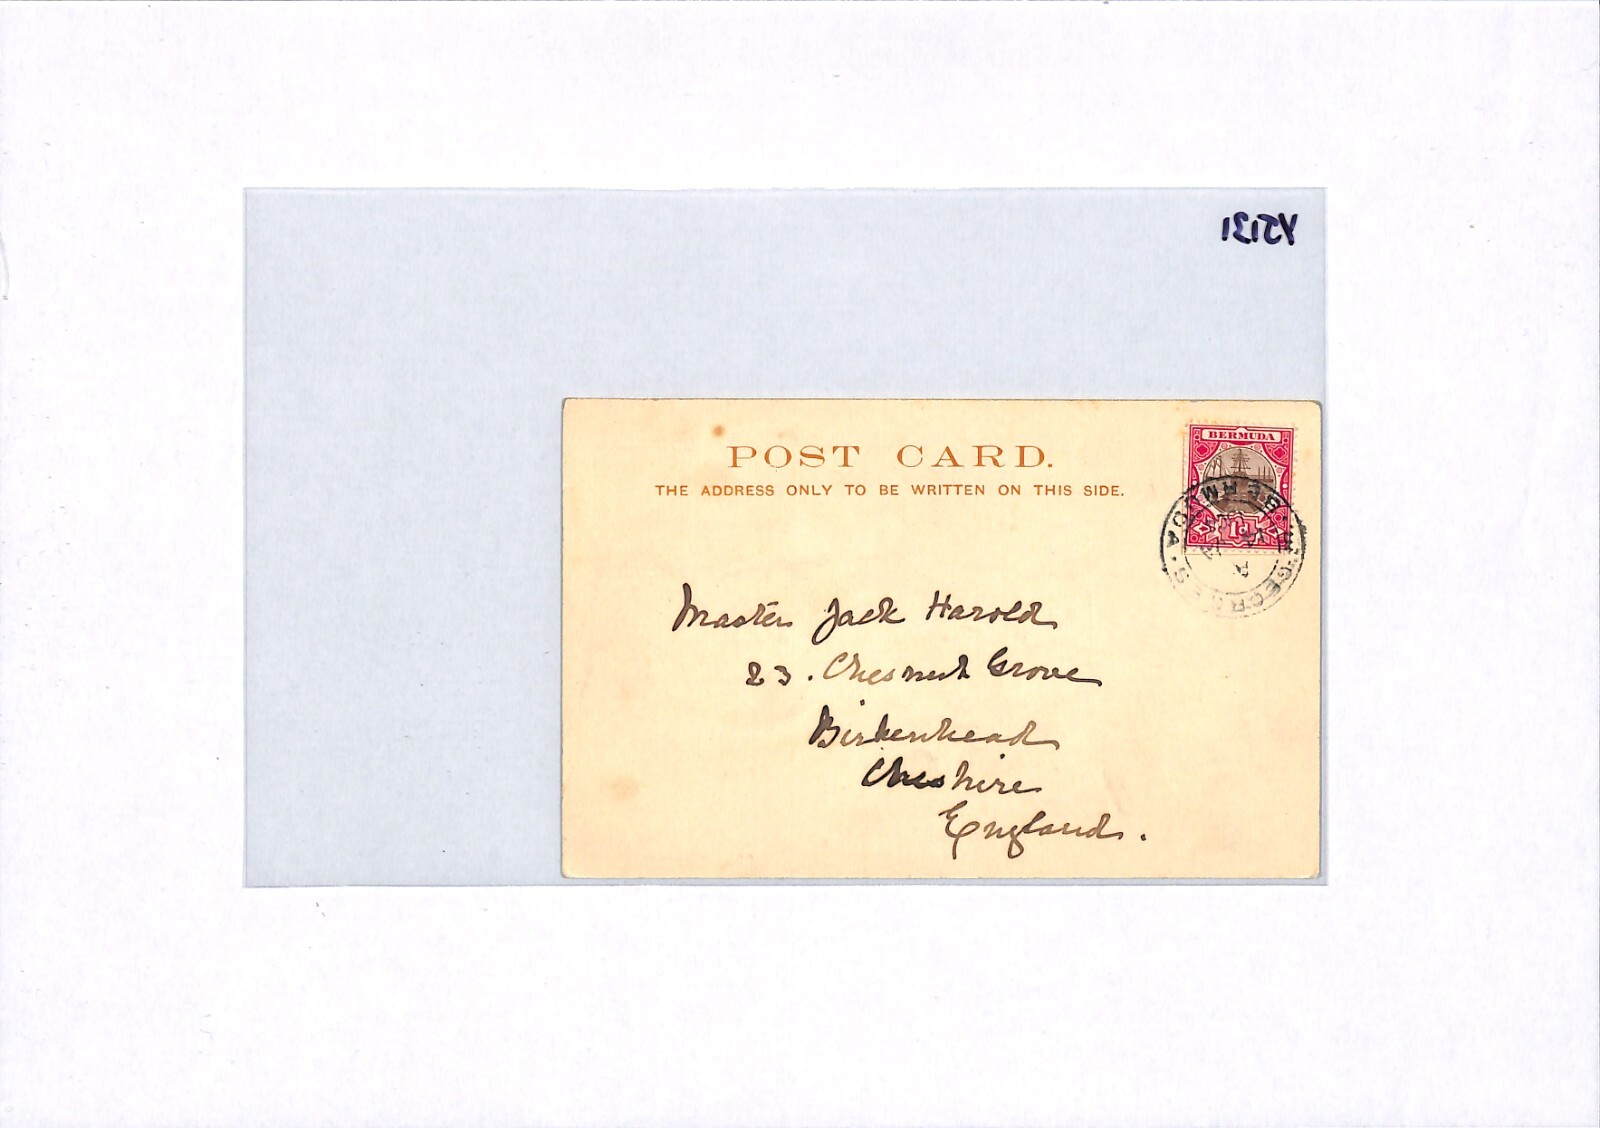 YZ131
POST CARD.
THE ADDRESS ONLY TO BE WRITTEN ON THIS SIDE.
BERMUDA
1d
ST. GEORGES BERMUDA
Master Jack Harold
23. Chesnut Grove
Birkenhead
Cheshire
England.